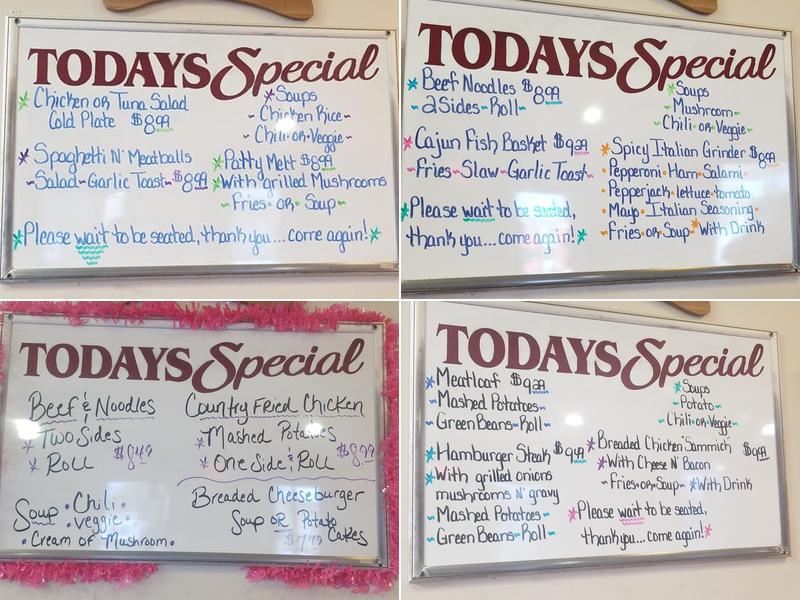 TODAYS Special
Chicken or Tuna Salad
Cold Plate $8.99
Spaghetti N' Meatballs
~Salad~Garlic Toast~$8.99
Soups
~Chicken Rice~
~Chili·or·Veggie~
Patty Melt $8.99
With grilled Mushrooms
~Fries·or·Soup~
Please wait to be seated, thank you... come again!
TODAYS Special
Beef Noodles $8.99
~2 Sides~Roll~
Cajun Fish Basket $9.39
~Fries~Slaw~Garlic Toast~
Please wait to be seated,
thank you... come again!
Soups
Mushroom~
~Chili·or·Veggie~
Spicy Italian Grinder $8.99
Pepperoni·Ham·Salami
Pepperjack·lettuce·tomato
Mayo·Italian Seasoning
Fries·or·Soup *With Drink
TODAYS Special
Beef & Noodles
Two Sides
Roll $8.49
Soup · Chili ·
· Veggie ·
· Cream of Mushroom ·
Country Fried Chicken
Mashed Potatoes
One Side & Roll
Breaded Cheeseburger
Soup or Potato
Cakes
TODAYS Special
Meatloaf $9.39
~Mashed Potatoes~
~Green Beans~Roll~
Hamburger Steak $9.49
With grilled onions
mushrooms N' gravy
~Mashed Potatoes~
~Green Beans~Roll~
Soups
~Potato~
Chili·or·Veggie~
Breaded Chicken "Sammich"
With Cheese N' Bacon
~Fries·or·Soup~ *With Drink
Please wait to be seated,
thank you... come again!